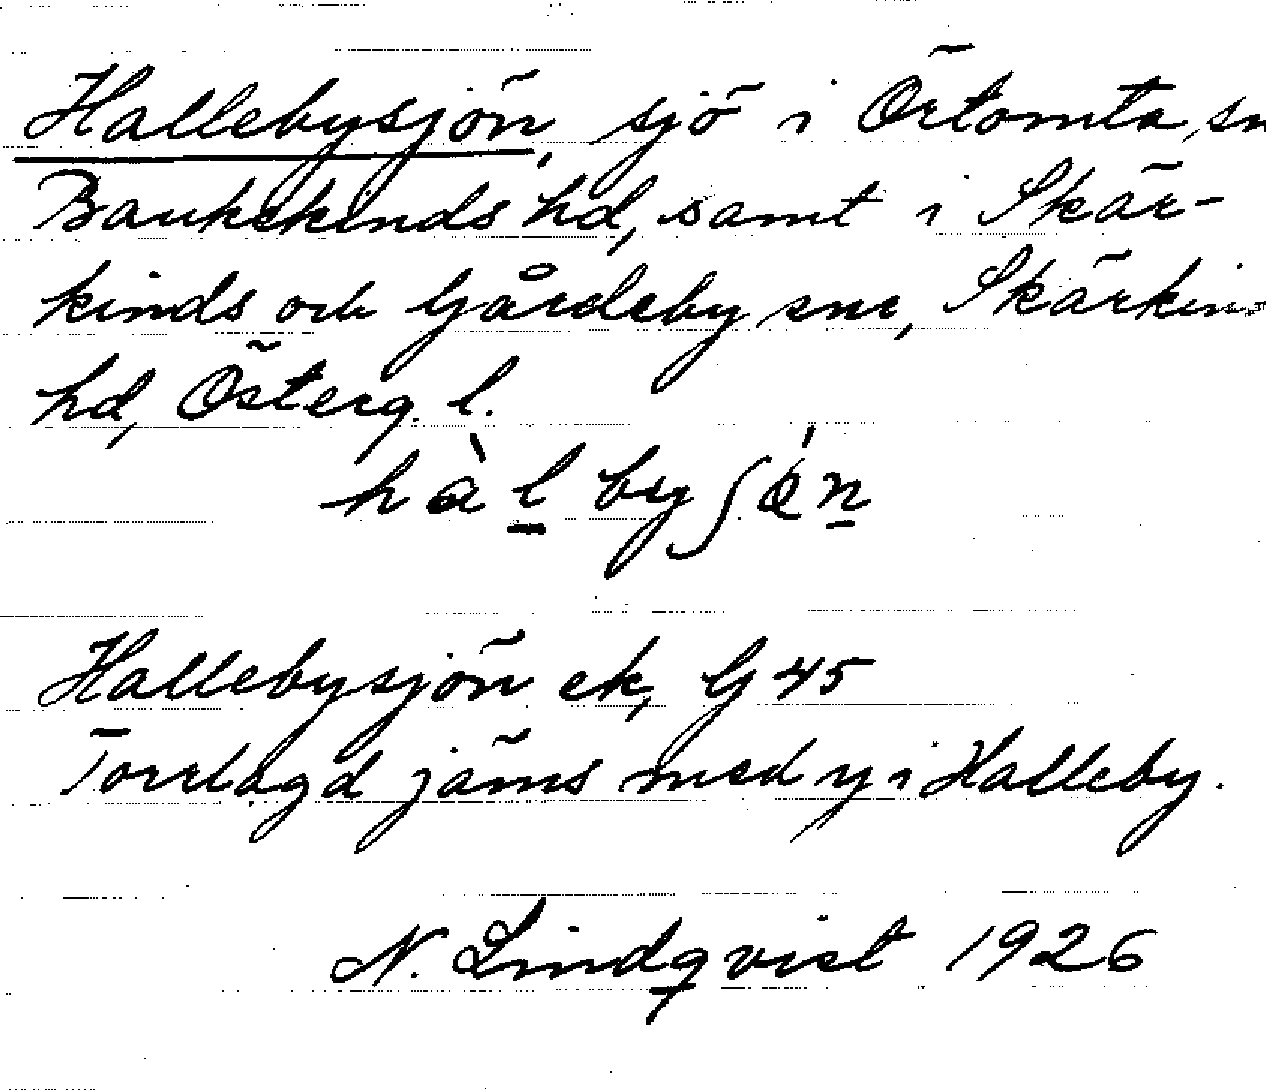 Hallebysjön, sjö i Örtomta sn
Bankekinds hd, samt i Skär-
kinds och Gårdeby snr, Skärkin
hd, Österg. l.
hàl̲byʃǿn̲
Hallebysjön ek, G 45
Torrlagd jäms med y i Halleby.
N. Lindqvist 1926